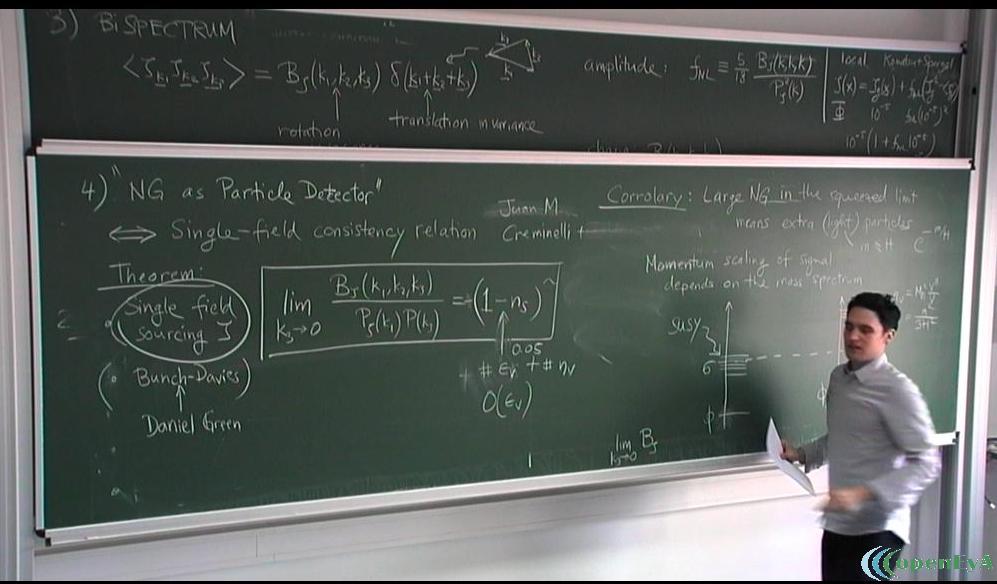 3) BiSPECTRUM
⟨ζ_k1 ζ_k2 ζ_k3⟩ = B_ζ(k₁,k₂,k₃) δ(k₁+k₂+k₃)
rotation
translation invariance
amplitude: f_NL ≡ 5/18 B_ζ(k,k,k)/P_ζ²(k)
local Komatsu+Spergel
ζ(x) = ζ_g(x) + f_NL(ζ_g²
Φ 10⁻⁵ f_NL(10⁻⁵)²
10⁻⁵(1 + f_NL 10⁻⁵)
4) "NG as Particle Detector"
⟺ Single-field consistency relation
Juan M.
Creminelli +
Theorem:
Single field
sourcing ζ
(Bunch-Davies)
Daniel Green
lim k₃→0 B_ζ(k₁,k₂,k₃)/P_ζ(k₁)P(k₃) = (1-n_s)~
0.05
+ # ε_v + # η_v
O(ε_v)
Corrolary: Large NG in the squeezed limit
means extra (light) particles
m ≲ H e^{-m/H}
Momentum scaling of signal
depends on the mass spectrum
SUSY
σ
φ
lim k₃→0 B_ζ
openEy4